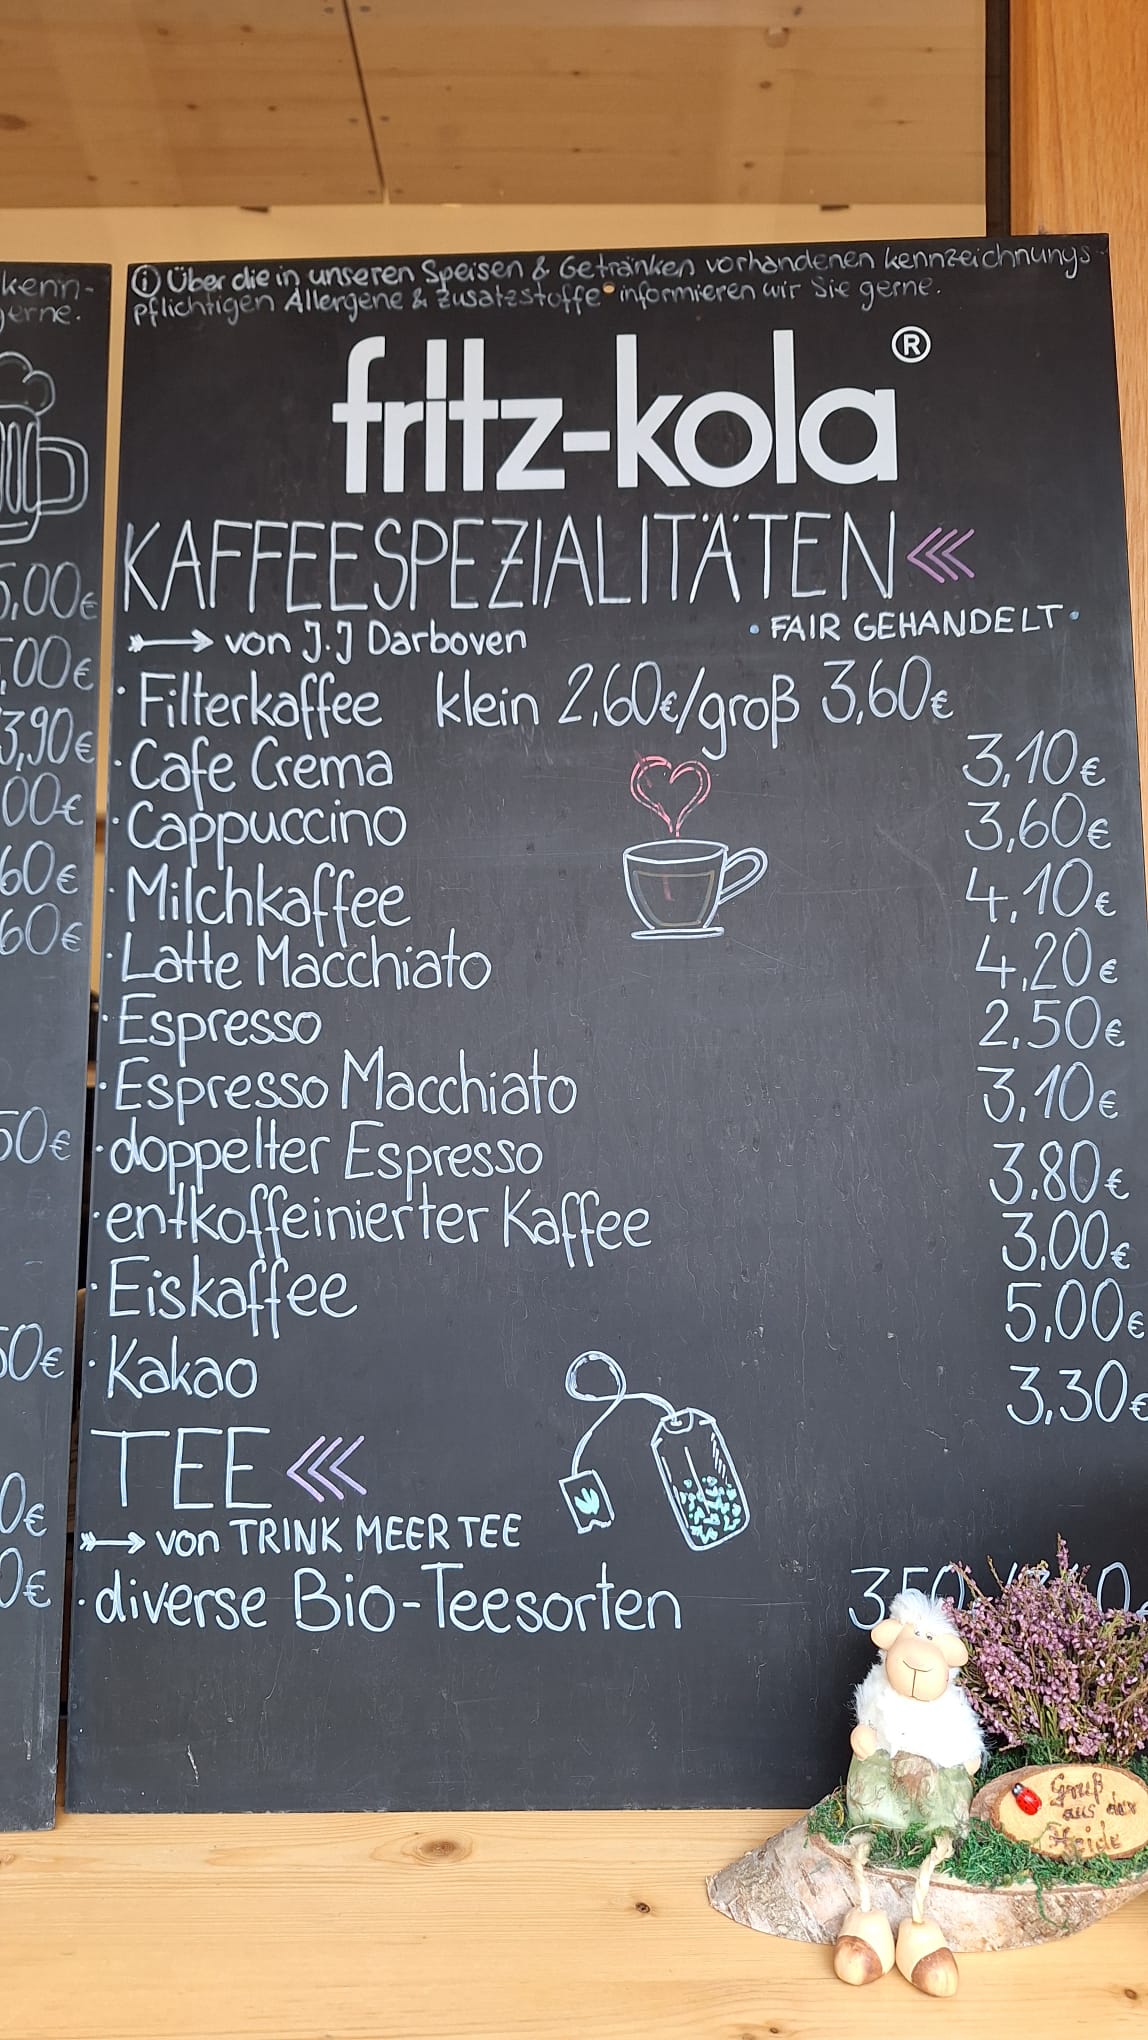 kenn-
gerne.
5,00€
,00€
3,90€
00€
60€
60€
50€
50€
0€
0€
ⓘ Über die in unseren Speisen & Getränken vorhandenen kennzeichnungs-
pflichtigen Allergene & Zusatzstoffe informieren wir Sie gerne.
fritz-kola®
KAFFEESPEZIALITÄTEN
von J.J Darboven • FAIR GEHANDELT •
• Filterkaffee klein 2,60€/groß 3,60€
• Cafe Crema 3,10€
• Cappuccino 3,60€
• Milchkaffee 4,10€
• Latte Macchiato 4,20€
• Espresso 2,50€
• Espresso Macchiato 3,10€
• doppelter Espresso 3.80€
• entkoffeinierter Kaffee 3,00€
• Eiskaffee 5,00€
• Kakao 3,30€
TEE
von TRINK MEER TEE
• diverse Bio-Teesorten
Gruß
aus der
Heide